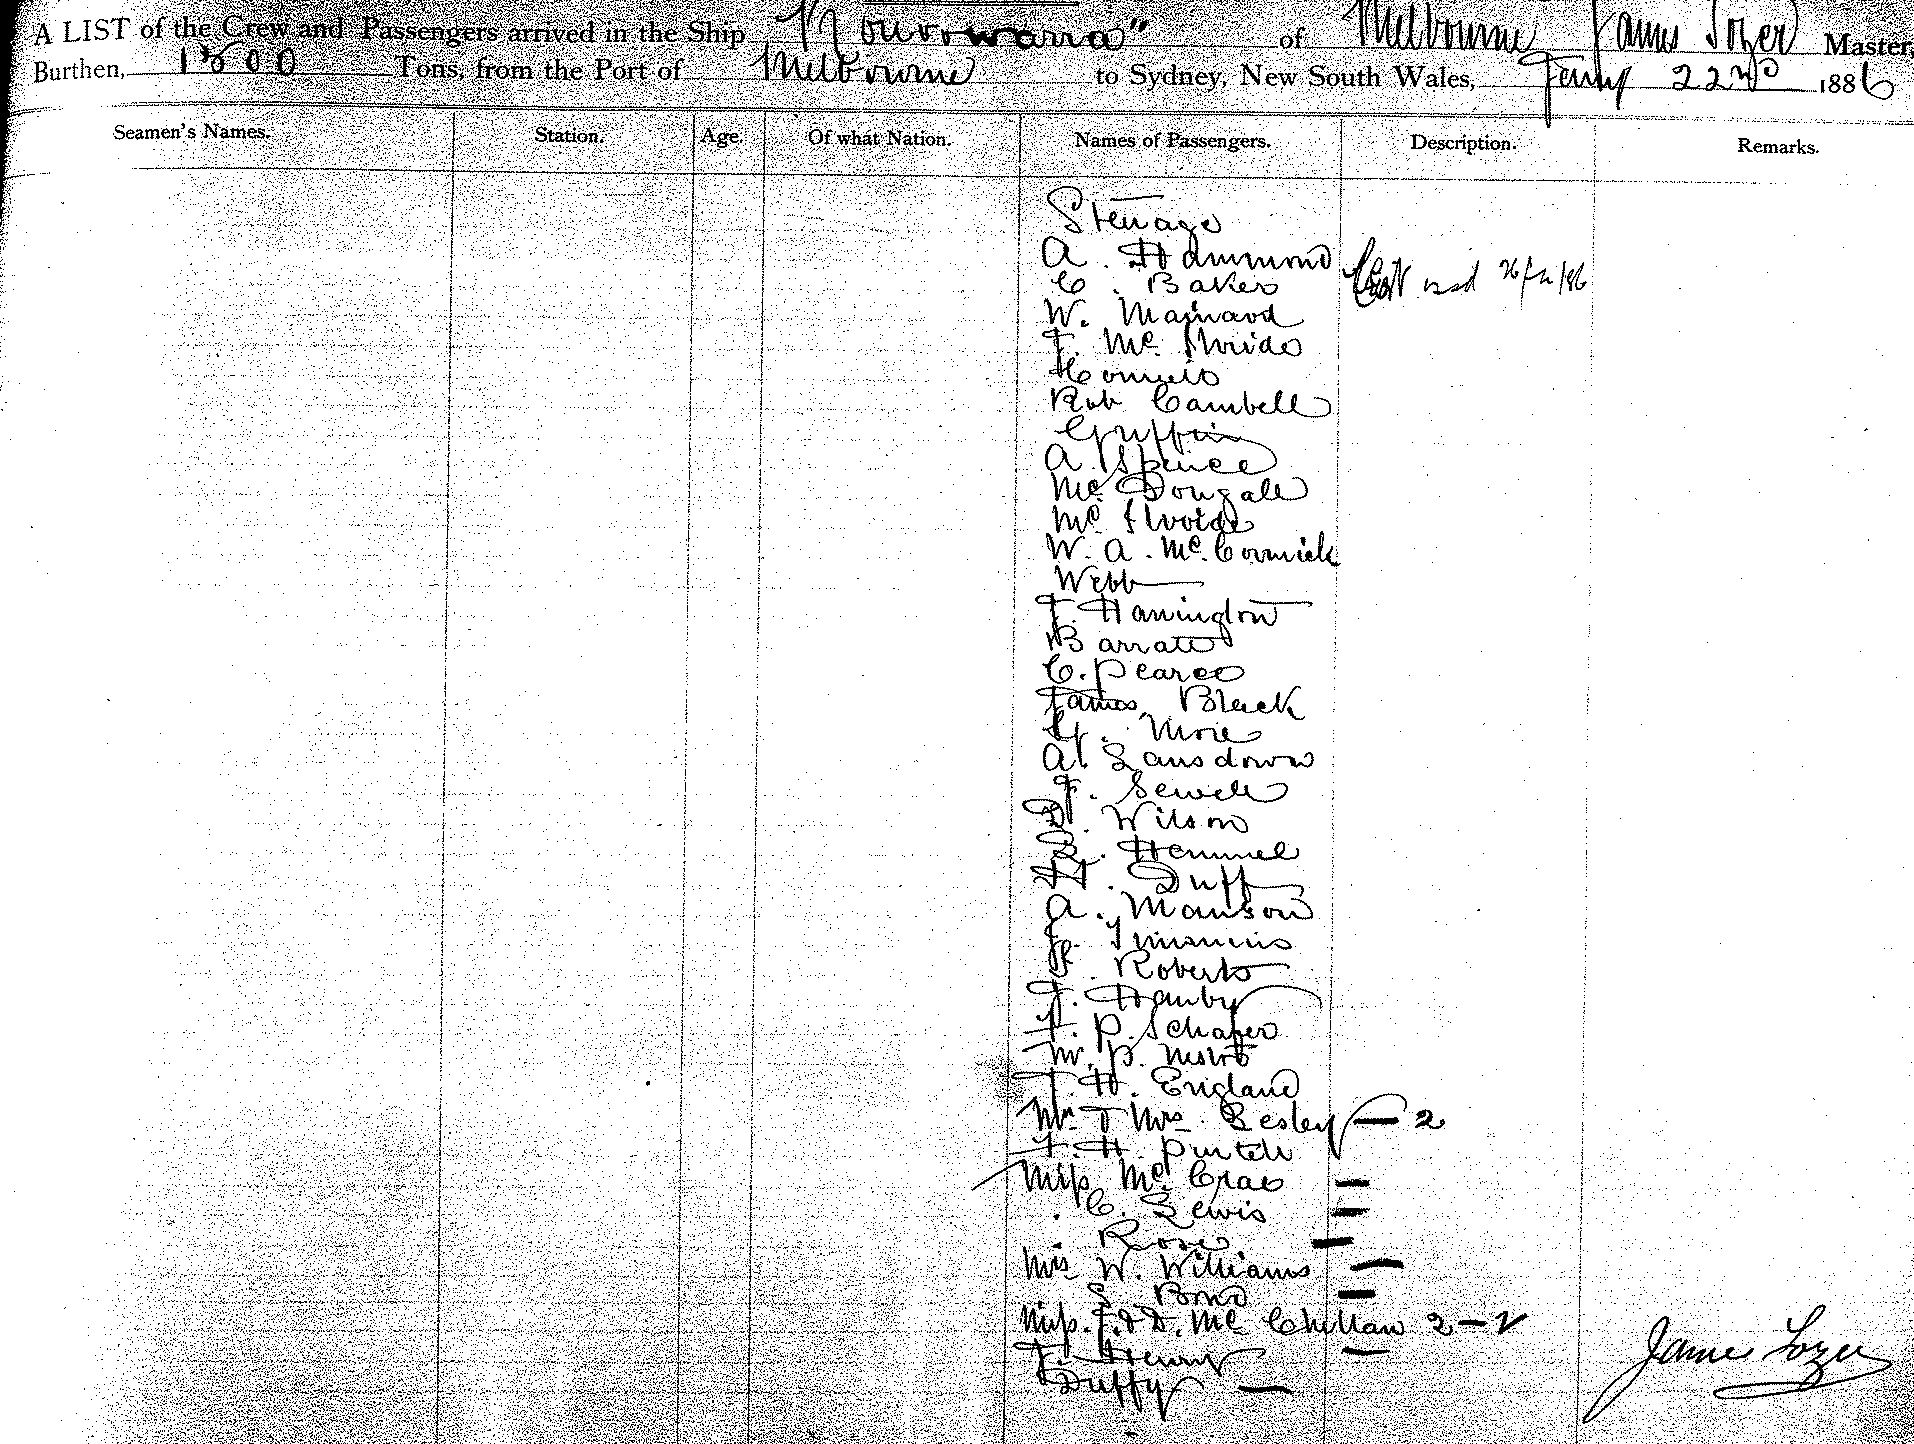 A LIST of the Crew and Passengers arrived in the Ship "Bowowarra" of Melbourne James Lozer Master,
Burthen, 1500 Tons, from the Port of Melbourne to Sydney, New South Wales, Jany 22nd 1886
Seamen's Names. Station. Age. Of what Nation. Names of Passengers. Description. Remarks.
Steerage
A. Hammond
C. Baker
W. Mainard
Mc
Rob Cambell
Griffin
A. Spence
Mc Dougall
Mc
W. A. McCormick
Webb
J. Harrington
Barratt
C. Pearce
James Black
More
A. Lansdown
J. Sewell
D. Wilson
Hemmel
H. Duff
A. Manson
J. Timmins
Roberts
J. Hanby
F. P. Schafer
W. P.
J. H. England
Mr & Mrs Besley — 2
F. H. Purtell
Miss McCrae —
" C. Lewis —
" Rose —
Mrs W. Williams —
Bond —
Miss J. & D. Mc 2 — 2
J. Henry —
Duffy —
James Lozer